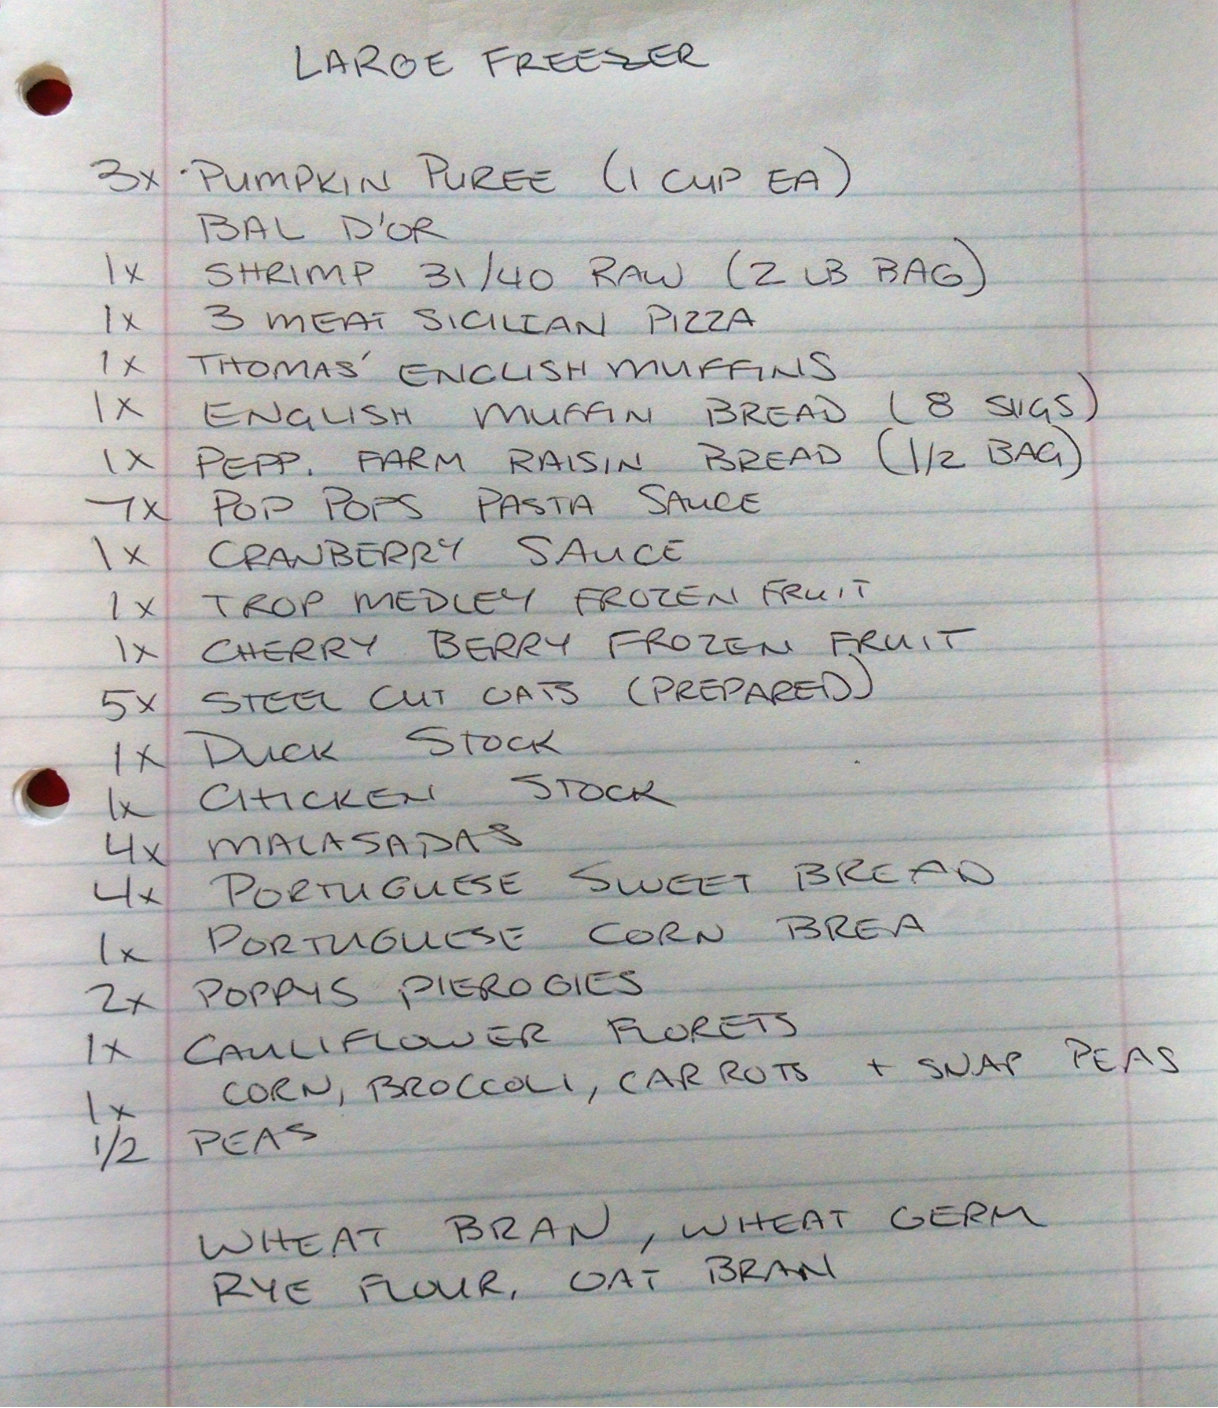 LARGE FREEZER
3x PUMPKIN PUREE (1 CUP EA)
BAL D'OR
1x SHRIMP 31/40 RAW (2 LB BAG)
1x 3 MEAT SICILIAN PIZZA
1x THOMAS' ENGLISH MUFFINS
1x ENGLISH MUFFIN BREAD (8 SLICES)
1x PEPP. FARM RAISIN BREAD (1/2 BAG)
7x POP POPS PASTA SAUCE
1x CRANBERRY SAUCE
1x TROP MEDLEY FROZEN FRUIT
1x CHERRY BERRY FROZEN FRUIT
5x STEEL CUT OATS (PREPARED)
1x DUCK STOCK
1x CHICKEN STOCK
4x MALASADAS
4x PORTUGUESE SWEET BREAD
1x PORTUGUESE CORN BREA
2x POPPYS PIEROGIES
1x CAULIFLOWER FLORETS
1x CORN, BROCCOLI, CARROTS + SNAP PEAS
1/2 PEAS
WHEAT BRAN, WHEAT GERM
RYE FLOUR, OAT BRAN